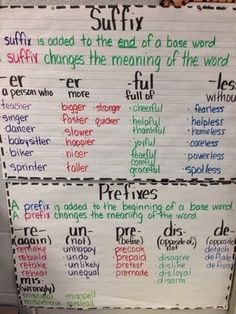 Suffix
A suffix is added to the end of a base word
A suffix changes the meaning of the word
-er -er -ful -less
a person who more full of without
teacher bigger stronger cheerful fearless
singer faster quicker helpful helpless
dancer slower thankful homeless
babysitter happier hopeful hopeless
biker nicer fearful careless
sprinter taller graceful spotless
Prefixes
A prefix is added to the beginning of a base word
A prefix changes the meaning of the word
-re- -un- -pre- -dis- -de-
(again) (not) (before) (opposite of) (opposite of)
remake unhappy precook disagree detach
rebuild undo prepaid disobey deflate
retake unlikely pretest disloyal defrost
reheat unequal premade disarm
mis
(wrongly)
misspell